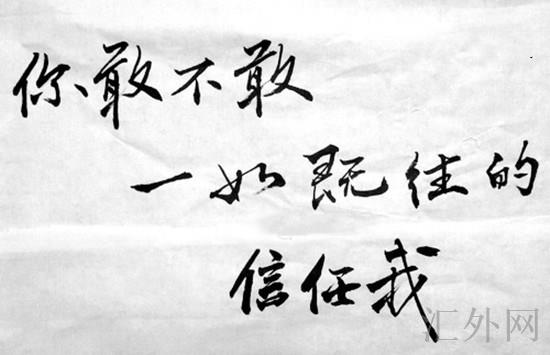 你敢不敢
一如既往的
信任我
汇外网